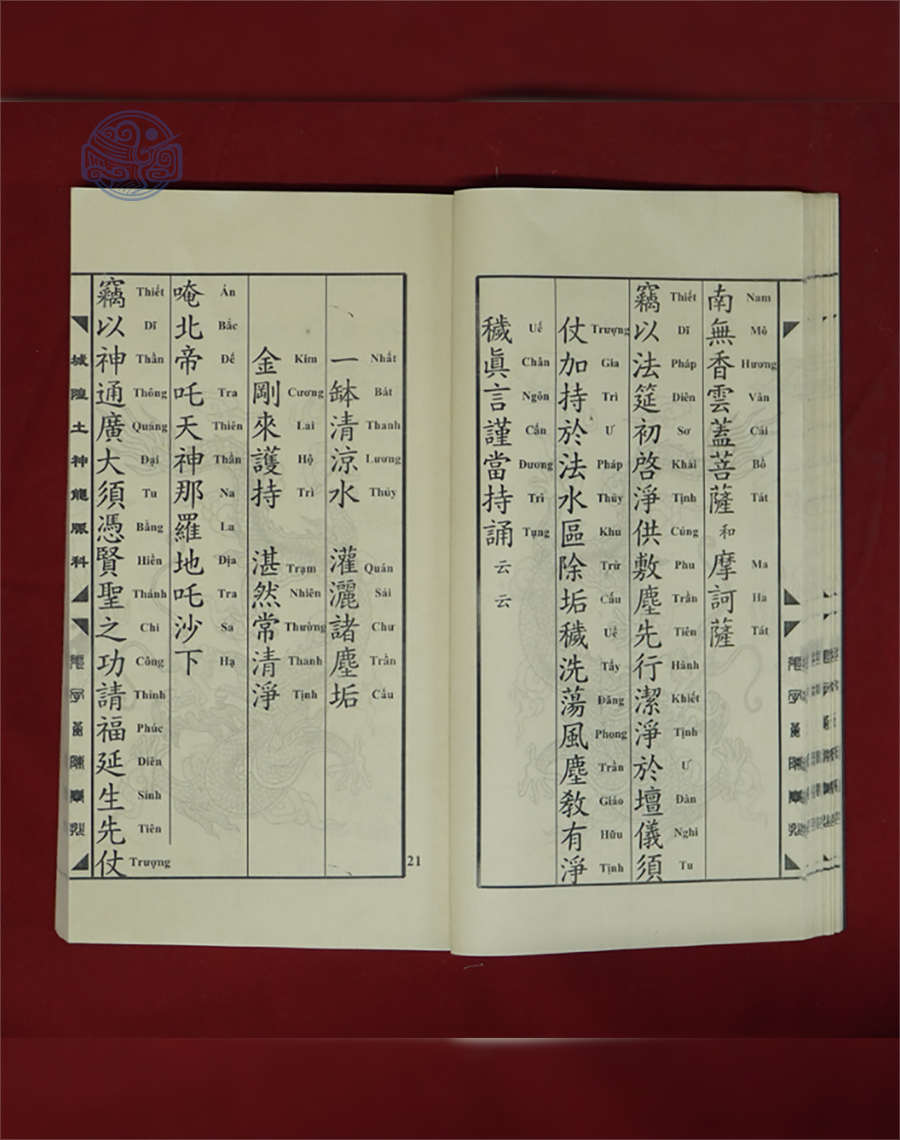 南無香雲蓋菩薩和摩訶薩
Nam Mô Hương Vân Cái Bồ Tát Ma Ha Tát
竊以法筵初啓淨供敷塵先行潔淨於壇儀須
Thiết Dĩ Pháp Diên Sơ Khải Tịnh Cúng Phu Trần Tiên Hành Khiết Tịnh Ư Đàn Nghi Tu
仗加持於法水區除垢穢洗蕩風塵教有淨
Trượng Gia Trì Ư Pháp Thủy Khu Trừ Cấu Uế Tẩy Đãng Phong Trần Giáo Hữu Tịnh
穢眞言謹當持誦云云
Uế Chân Ngôn Cẩn Đương Trì Tụng
一鉢清涼水 灌灑諸塵垢
Nhất Bát Thanh Lương Thủy Quán Sái Chư Trần Cấu
金剛來護持 湛然常清淨
Kim Cương Lai Hộ Trì Trạm Nhiên Thường Thanh Tịnh
唵北帝吒天神那羅地吒沙下
Án Bắc Đế Tra Thiên Thần Na La Địa Tra Sa Hạ
竊以神通廣大須憑賢聖之功請福延生先仗
Thiết Dĩ Thần Thông Quảng Đại Tu Bằng Hiền Thánh Chi Công Thỉnh Phúc Diên Sinh Tiên Trượng
城隍土神龍脈科
21